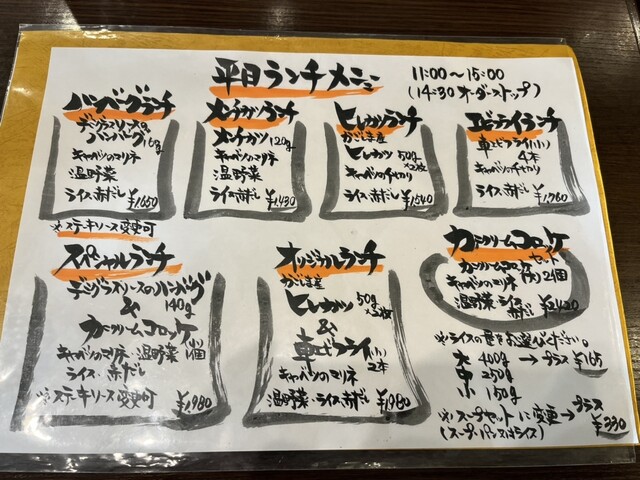 平日ランチメニュー
11:00〜15:00
(14:30 オーダーストップ)
ハンバーグランチ
デミグラスソースの
ハンバーグ
キャベツのマリネ
温野菜
ライス 赤だし ¥1,650
※ステーキソース変更可
メンチカツランチ
メンチカツ 120g
キャベツのマリネ
温野菜
ライス 赤だし ¥1,430
ヒレカツランチ
かごしま産
ヒレカツ 50g×2枚
キャベツの千切り
ライス 赤だし ¥1,540
エビフライランチ
車エビフライ(小)
4本
キャベツの千切り
ライス 赤だし ¥1,760
スペシャルランチ
デミグラスソースのハンバーグ
140g
&
カニクリームコロッケ
(小)1個
キャベツのマリネ・温野菜
ライス・赤だし
※ステーキソース変更可 ¥1,980
オリジナルランチ
かごしま産
ヒレカツ 50g
&
車エビフライ(小)
2本
キャベツのマリネ
温野菜・ライス・赤だし ¥1,980
カニクリームコロッケ
セット
カニクリームコロッケ 2個
キャベツのマリネ
温野菜・ライス
赤だし ¥2,420
※ライスの量をお選びください。
大 400g → プラス ¥165
中 250g
小 150g
※スープセットに変更→プラス
(スープ・パン又はライス) ¥330